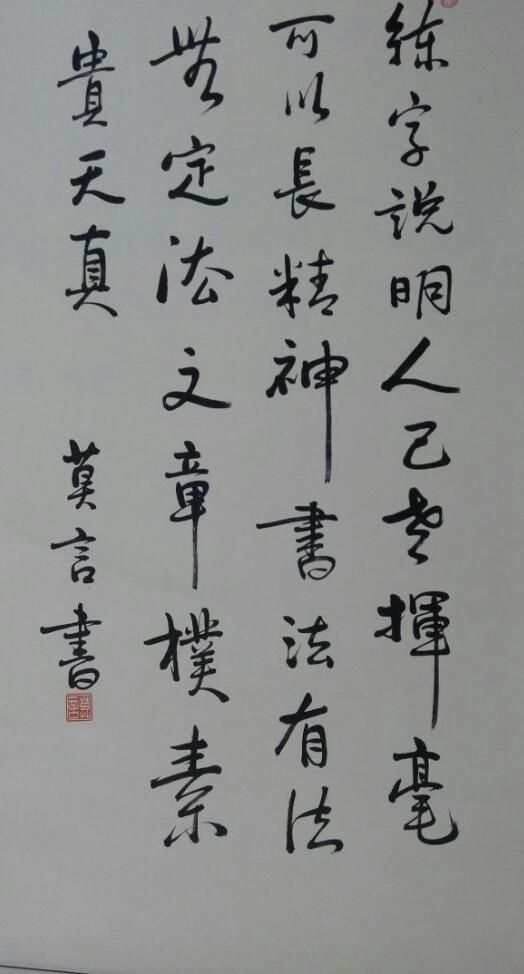 練字説明人已老揮毫
可以長精神書法有法
無定法文章樸素
貴天真
莫言書
莫言